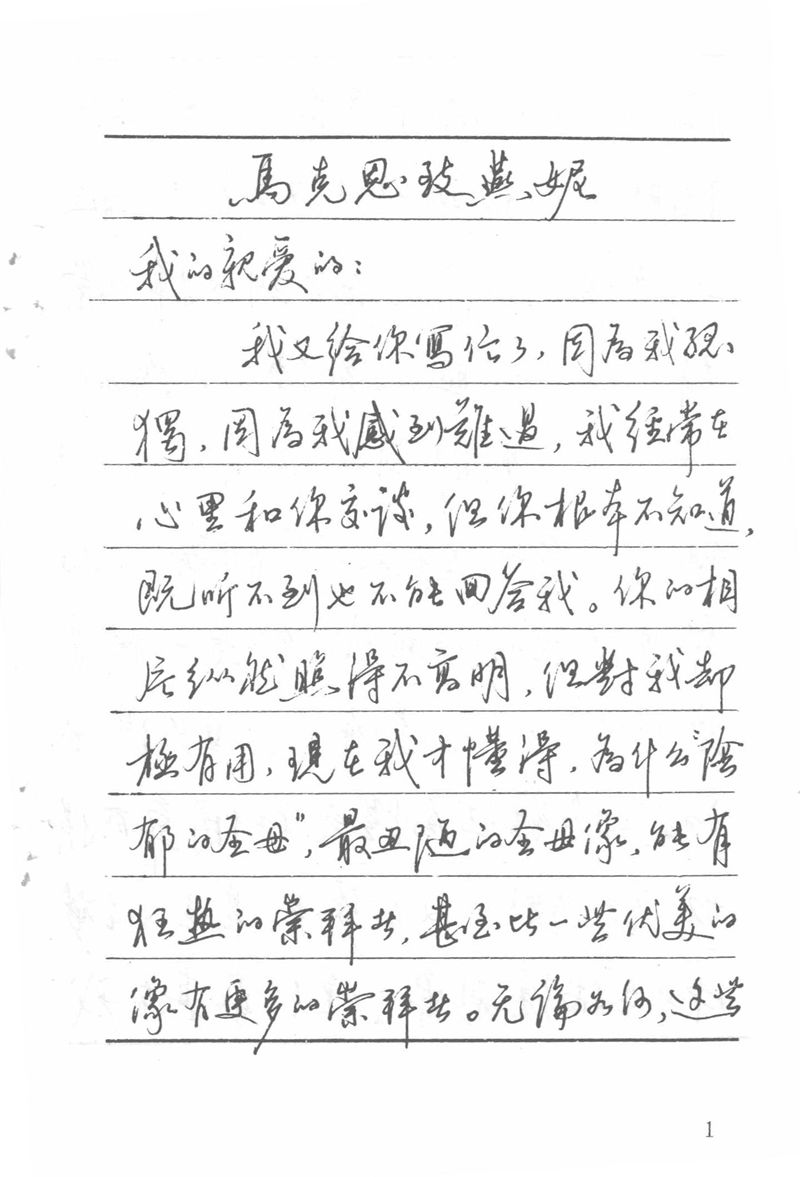 馬克思致燕妮
我的親爱的：
我又给你寫信了，因為我孤
獨，因為我感到難過，我經常在
心里和你交谈，但你根本不知道，
既听不到也不能回答我。你的相
片纵然照得不高明，但對我却
極有用，現在我才懂得，為什么“陰
郁的圣母”，最丑陋的圣母像，能有
狂热的崇拜者，甚至比一些优美的
像有更多的崇拜者。无論如何，这些
1